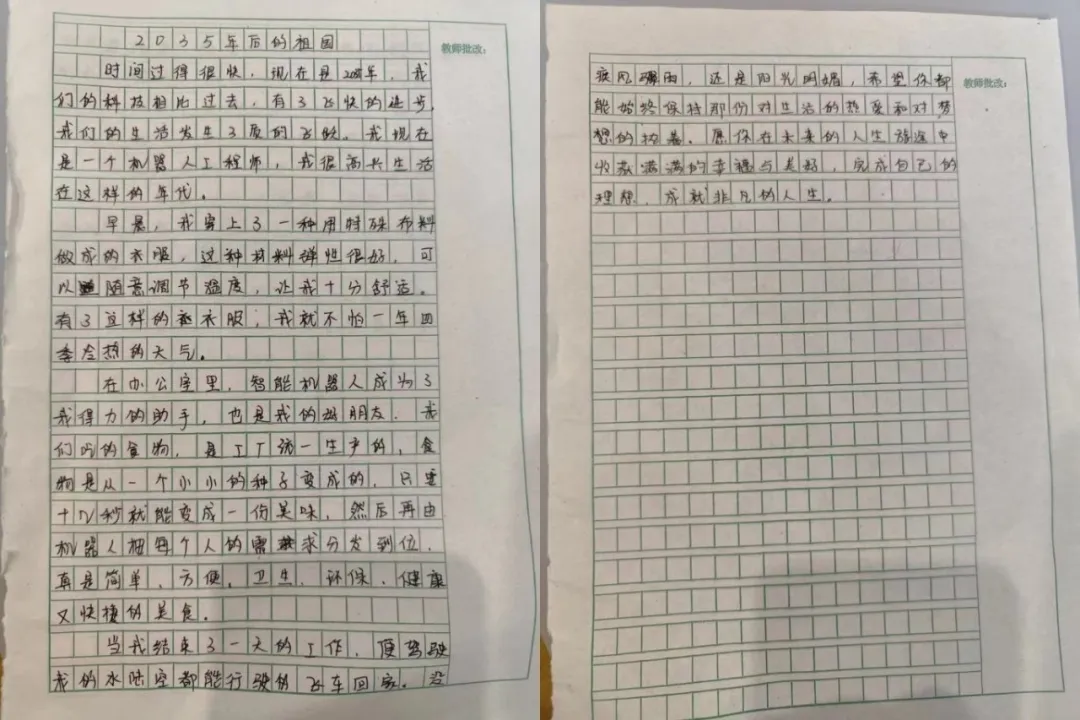 2035年后的祖国
教师批改:
时间过得很快,现在是2035年,我
们的科技相比过去,有了飞快的进步,
我们的生活发生了质的飞跃。我现在
是一个机器人工程师,我很高兴生活
在这样的年代。
早晨,我穿上了一种用特殊布料
做成的衣服,这种材料弹性很好,可
以随意调节温度,让我十分舒适。
有了这样的衣服,我就不怕一年四
季冷热的天气。
在办公室里,智能机器人成为了
我得力的助手,也是我的朋友,我
们吃的食物,是工厂统一生产的,食
物是从一个小小的种子变成的,只要
十几秒就能变成一份美味,然后再由
机器人按每个人的需求分发到位,
真是简单、方便、卫生、环保、健康
又快捷的美食。
当我结束了一天的工作,便驾驶
我的水陆空都能行驶的飞车回家。没
教师批改:
疾风骤雨,还是阳光明媚,希望你都
能始终保持那份对生活的热爱和对梦
想的执着。愿你在未来的人生旅途中
收获满满的幸福与美好,完成自己的
理想,成就非凡的人生。